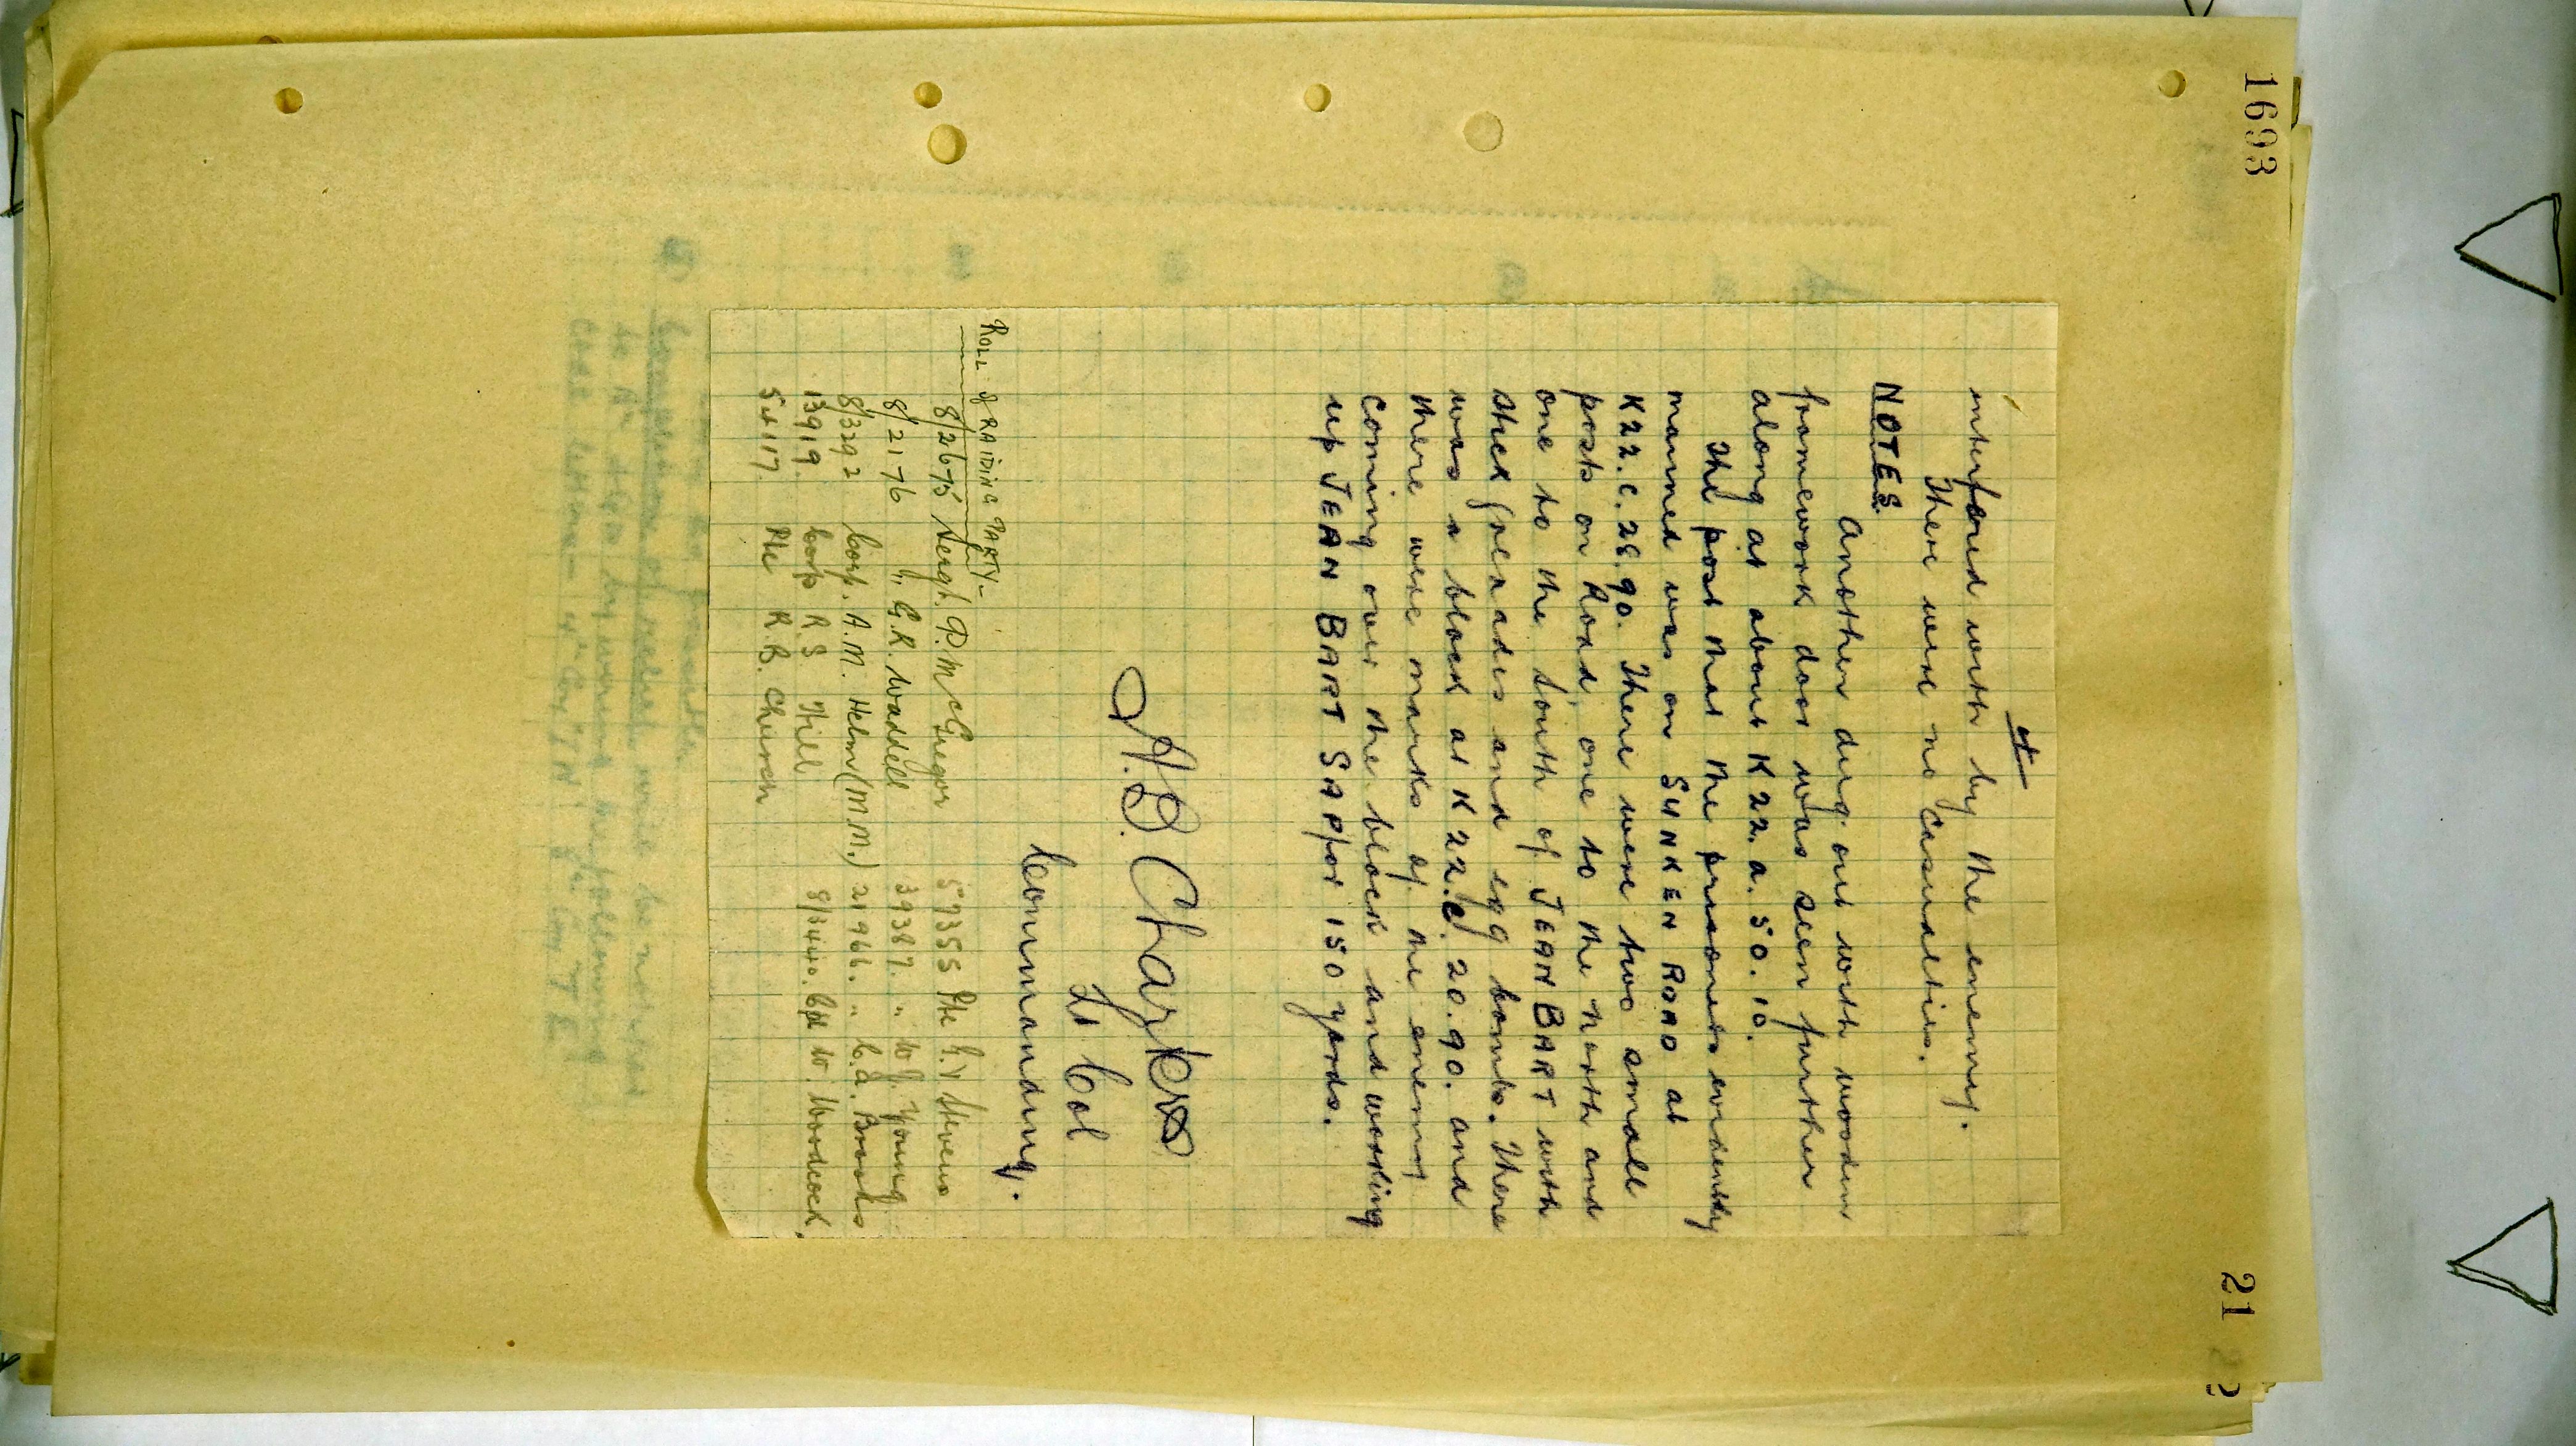 1693
21
4
interfered with by the enemy.
There were no casualties.
NOTES.
Another dug-out with wooden
framework door was seen further
along at about K22.a.50.10.
The post that the prisoners evidently
manned was on SUNKEN ROAD at
K22.c.28.90. There were two small
posts on Road, one to the north and
one to the south of JEAN BART with
stick grenades and egg bombs. There
was a block at K22.c.20.90. and
there were marks of the enemy
coming over the block and working
up JEAN BART SAP for 150 yards.
A.B. Charters
Lt Col
Commanding.
ROLL of RAIDING PARTY-
8/2675 Sergt. P. McGregor 57355 Pte G.V Stevens
8/2176 " G.R. Waddell 39387. " W J. Young
8/3292 Corp. A.M. Helm (M.M.) 21966. " C.A. Brooks
13919. Corp R S Hill 8/3440. Cpl W. Woodcock,
54117. Pte R.B. Church